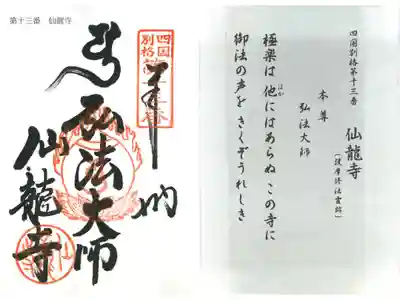 第十三番 仙龍寺
四国
別格
奉納
弘法大師
仙龍寺
四国別格第十三番
仙龍寺
(護摩修法霊跡)
本尊
弘法大師
極楽は 他にはあらぬ この寺に
ほか
御法の声を きくぞうれしき